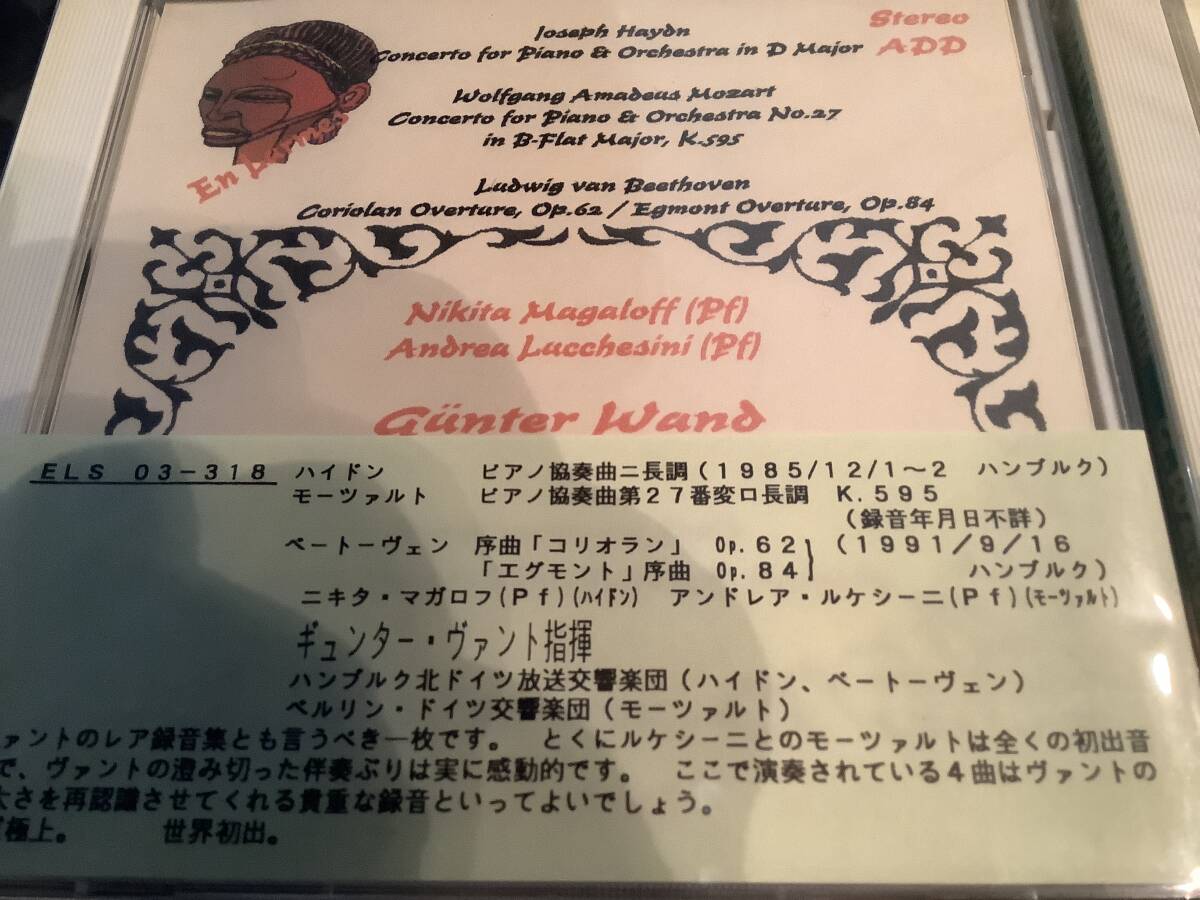 Joseph Haydn
Concerto for Piano & Orchestra in D Major
Stereo
ADD
Wolfgang Amadeus Mozart
Concerto for Piano & Orchestra No.27
in B-Flat Major, K.595
En Larmes
Ludwig van Beethoven
Coriolan Overture, Op.62 / Egmont Overture, Op.84
Nikita Magaloff (Pf)
Andrea Lucchesini (Pf)
Günter Wand
ELS 03-318 ハイドン ピアノ協奏曲ニ長調(1985/12/1~2 ハンブルク)
モーツァルト ピアノ協奏曲第27番変ロ長調 K.595
(録音年月日不詳)
ベートーヴェン 序曲「コリオラン」 Op.62 (1991/9/16
「エグモント」序曲 Op.84 ハンブルク)
ニキタ・マガロフ(Pf)(ハイドン) アンドレア・ルケシーニ(Pf)(モーツァルト)
ギュンター・ヴァント指揮
ハンブルク北ドイツ放送交響楽団(ハイドン、ベートーヴェン)
ベルリン・ドイツ交響楽団(モーツァルト)
ァントのレア録音集とも言うべき一枚です。 とくにルケシーニとのモーツァルトは全くの初出音
で、ヴァントの澄み切った伴奏ぶりは実に感動的です。 ここで演奏されている4曲はヴァントの
大さを再認識させてくれる貴重な録音といってよいでしょう。
極上。 世界初出。